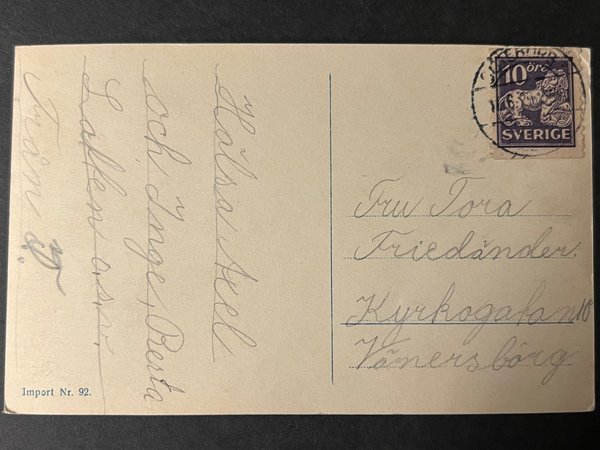 Hälsa Axel
och Inge, Resta
Lallen o.s.v.
Från
10 öre
SVERIGE
Fru Tora
Friedänder.
Kyrkogatan 10
Vänersborg
Import Nr. 92.